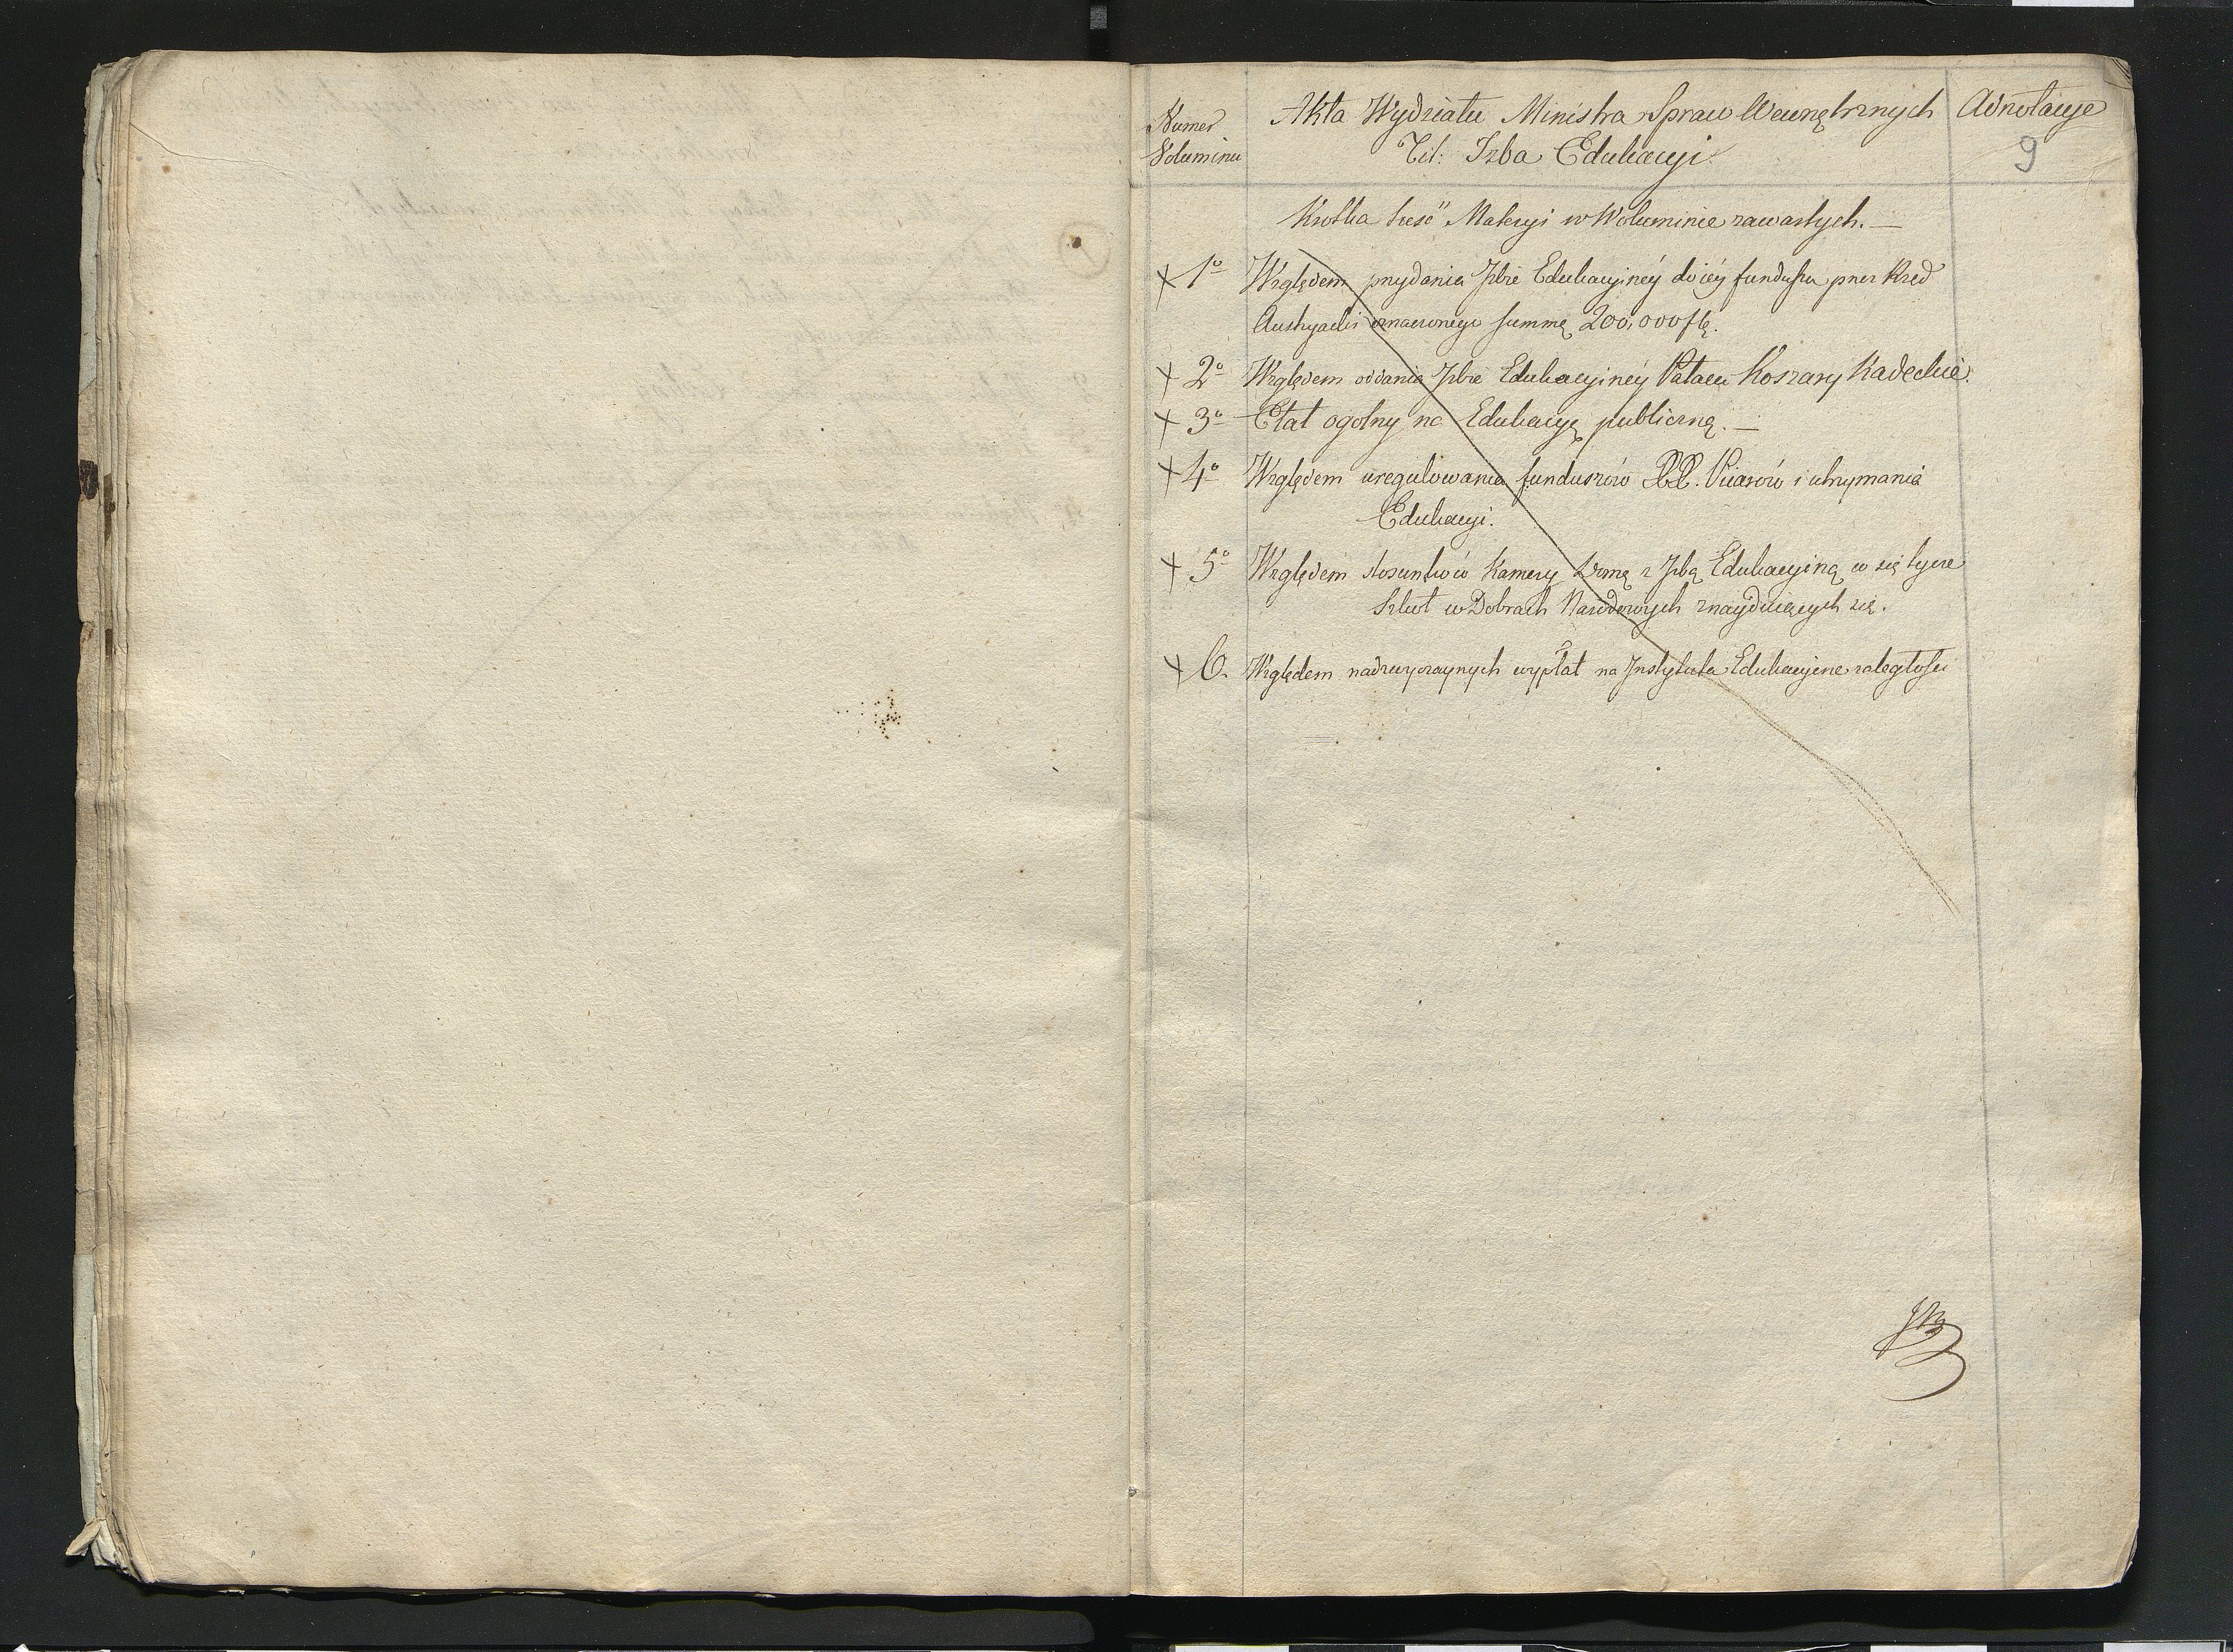 Numer
Voluminu
Akta Wydziału Ministra Spraw Wewnętrznych
Tit: Izba Edukacyi
Adnotacye
9
Krotka treść Materyi w Woluminie zawartych. —
+ 1° Względem przydania Izbie Edukacyiney do iey funduszu przez Rząd
Austryacki oznaczonego summę 200,000 fl.
+ 2° Względem oddania Izbie Edukacyiney Pałacu Koszary Kadeckie.
+ 3° Etat ogolny na Edukacyę publiczną. —
+ 4° Względem uregulowania funduszów PP. Piiarów i utrzymania
Edukacyi.
+ 5° Względem stosunków Kamery z Izbą Edukacyiną co się tycze
Szkół w Dobrach Narodowych znayduiących się.
+ 6. Względem nadzwyczaynych wypłat na Instytuta Edukacyine zaległości